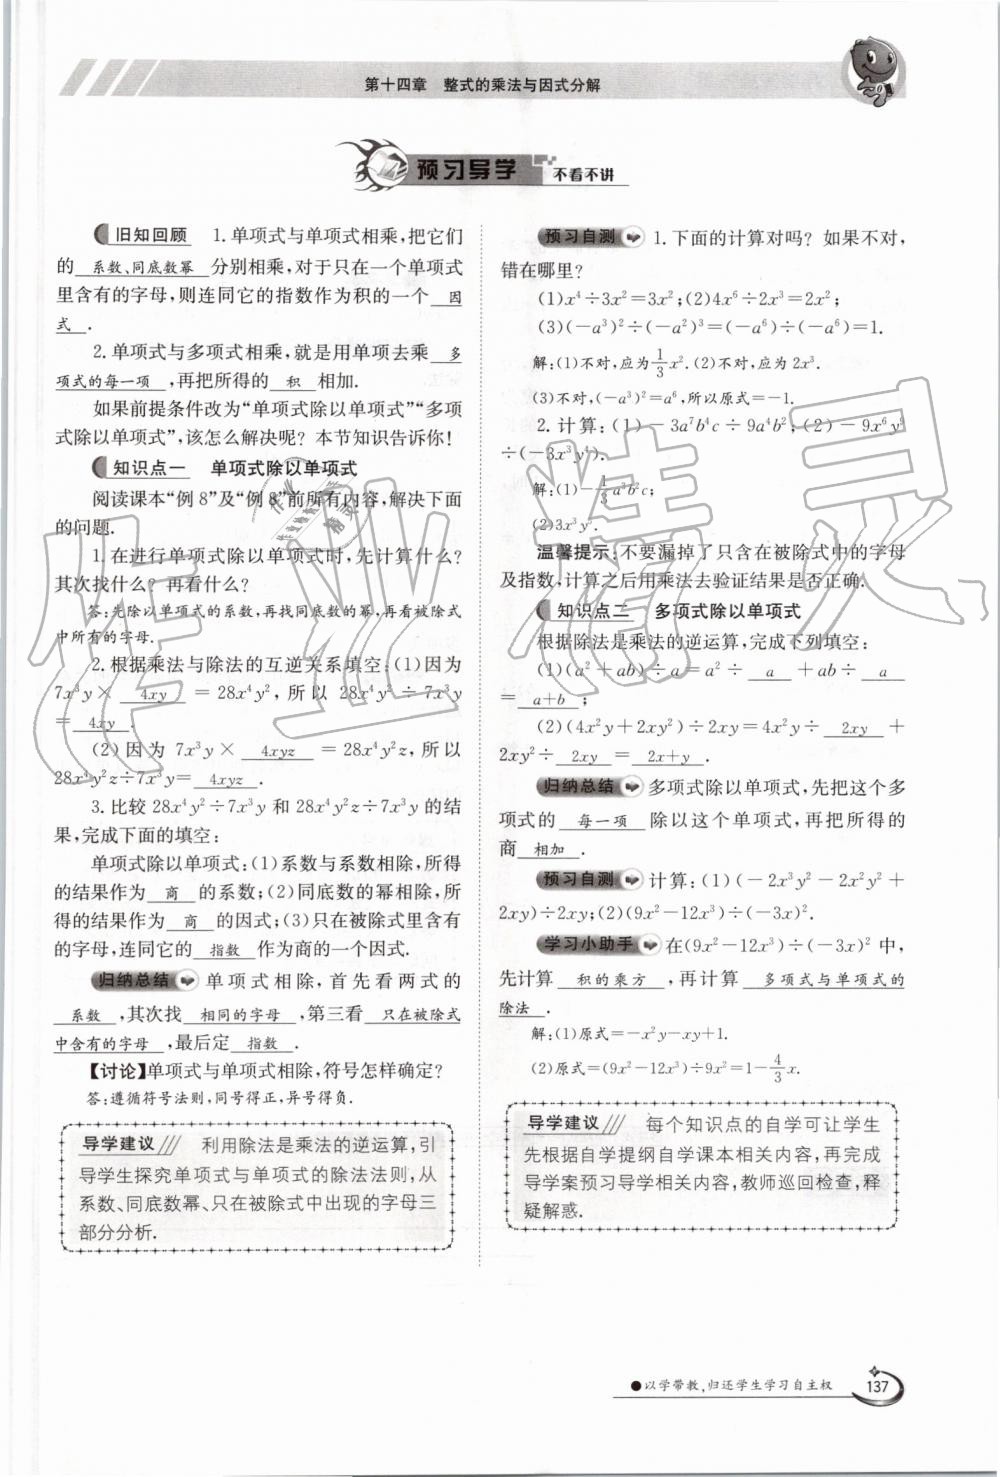 第十四章 整式的乘法与因式分解
预习导学 不看不讲
旧知回顾 1.单项式与单项式相乘,把它们
的 系数、同底数幂 分别相乘,对于只在一个单项式
里含有的字母,则连同它的指数作为积的一个 因
式 .
2.单项式与多项式相乘,就是用单项去乘 多
项式的每一项 ,再把所得的 积 相加.
如果前提条件改为“单项式除以单项式”“多项
式除以单项式”,该怎么解决呢? 本节知识告诉你!
知识点一 单项式除以单项式
阅读课本“例8”及“例8”前所有内容,解决下面
的问题.
1.在进行单项式除以单项式时,先计算什么?
其次找什么? 再看什么?
答:先除以单项式的系数,再找同底数的幂,再看被除式
中所有的字母.
2.根据乘法与除法的互逆关系填空:(1)因为
7x³y× 4xy =28x⁴y²,所以 28x⁴y²÷7x³y
= 4xy .
(2)因为 7x³y× 4xyz =28x⁴y²z,所以
28x⁴y²z÷7x³y= 4xyz .
3.比较 28x⁴y²÷7x³y 和 28x⁴y²z÷7x³y 的结
果,完成下面的填空:
单项式除以单项式:(1)系数与系数相除,所得
的结果作为 商 的系数;(2)同底数的幂相除,所
得的结果作为 商 的因式;(3)只在被除式里含有
的字母,连同它的 指数 作为商的一个因式.
归纳总结 单项式相除,首先看两式的
系数 ,其次找 相同的字母 ,第三看 只在被除式
中含有的字母 ,最后定 指数 .
【讨论】单项式与单项式相除,符号怎样确定?
答:遵循符号法则,同号得正,异号得负.
导学建议 利用除法是乘法的逆运算,引
导学生探究单项式与单项式的除法法则,从
系数、同底数幂、只在被除式中出现的字母三
部分分析.
预习自测 1.下面的计算对吗? 如果不对,
错在哪里?
(1)x⁴÷3x²=3x²;(2)4x⁶÷2x³=2x²;
(3)(-a³)²÷(-a²)³=(-a⁶)÷(-a⁶)=1.
解:(1)不对,应为 1/3 x².(2)不对,应为 2x³.
(3)不对,(-a³)²=a⁶,所以原式=-1.
2.计算:(1)-3a⁷b⁴c÷9a⁴b²;(2)-9x⁶y⁹
÷(-3x³y²).
解:(1)-1/3 a³b²c;
(2)3x³y⁷.
温馨提示:不要漏掉了只含在被除式中的字母
及指数,计算之后用乘法去验证结果是否正确.
知识点二 多项式除以单项式
根据除法是乘法的逆运算,完成下列填空:
(1)(a²+ab)÷a=a²÷ a +ab÷ a
= a+b ;
(2)(4x²y+2xy²)÷2xy=4x²y÷ 2xy +
2xy²÷ 2xy = 2x+y .
归纳总结 多项式除以单项式,先把这个多
项式的 每一项 除以这个单项式,再把所得的
商 相加 .
预习自测 计算:(1)(-2x³y²-2x²y²+
2xy)÷2xy;(2)(9x²-12x³)÷(-3x)².
学习小助手 在(9x²-12x³)÷(-3x)² 中,
先计算 积的乘方 ,再计算 多项式与单项式的
除法 .
解:(1)原式=-x²y-xy+1.
(2)原式=(9x²-12x³)÷9x²=1-4/3 x.
导学建议 每个知识点的自学可让学生
先根据自学提纲自学课本相关内容,再完成
导学案预习导学相关内容,教师巡回检查,释
疑解惑.
●以学带教,归还学生学习自主权 137
作业精灵